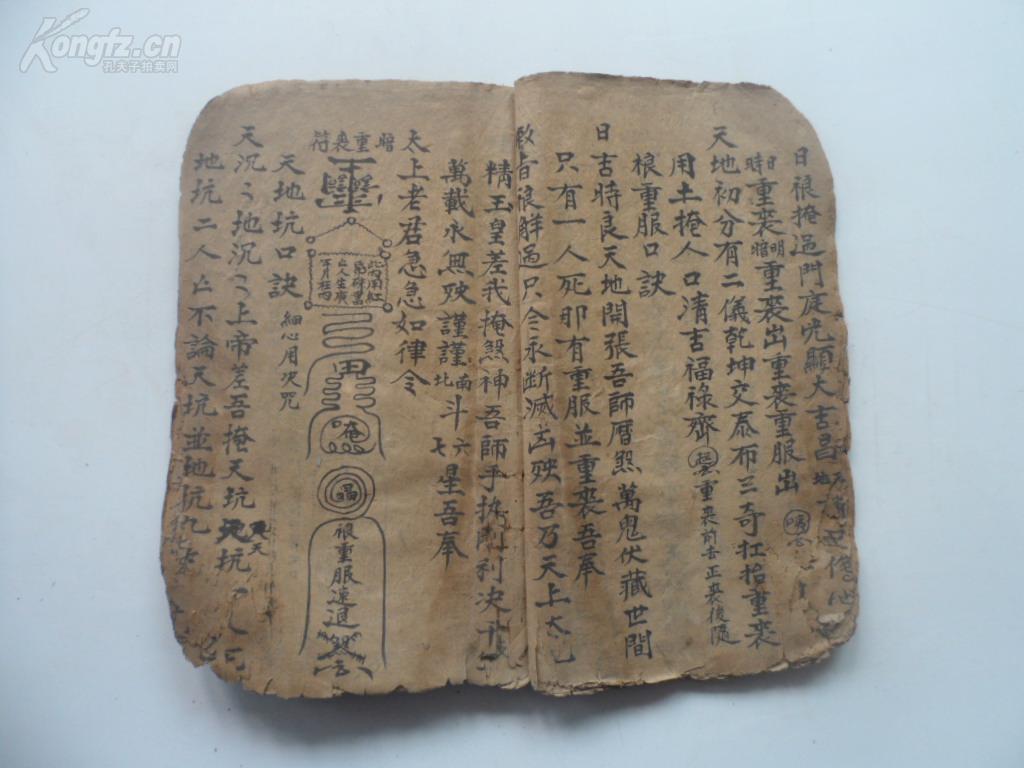 Kongfz.cn
孔夫子拍卖网
日狼掩過門庭光顯大吉昌
日時重喪明暗重喪出重喪重服出
天地初分有二儀乾坤交泰布三奇扛抬重喪
用土掩人口清吉福祿齊 重喪前去正喪後隨
狼重服口訣
日吉時良天地開張吾師曆煞萬鬼伏藏世間
只有一人死耶有重服並重喪吾奉
狼觧過只今永断滅凶殃吾乃天上太
精玉皇差我掩煞神吾師手执剛利决
萬載永無殃謹謹南北斗六七星吾奉
太上老君急急如律令
暗重喪符
田
掩
狼重服速退
天地坑口訣 細心用决咒
天沉〻地沉〻上帝差吾掩天坑
地坑二人亡不論天坑並地坑